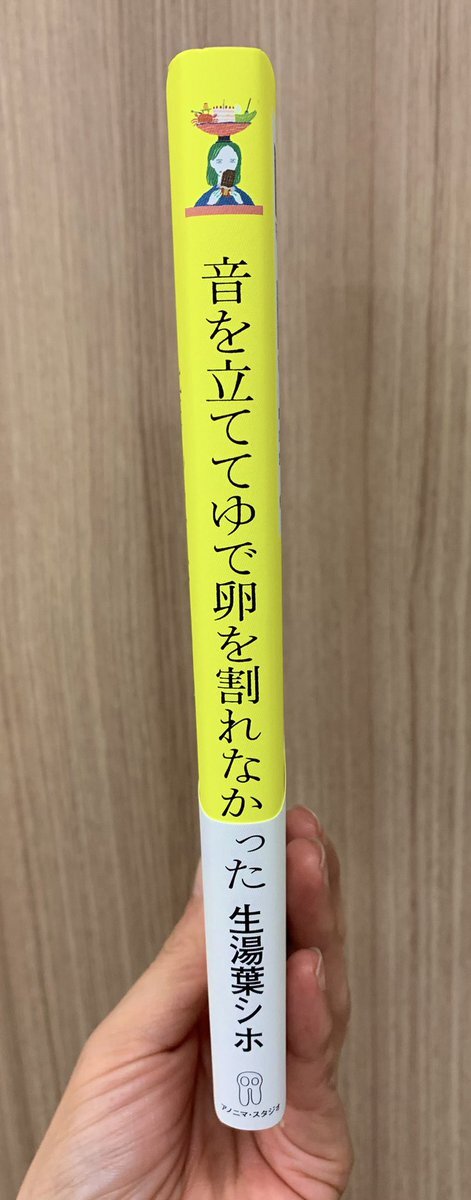 音を立ててゆで卵を割れなかった
生湯葉シホ
アノニマ・スタジオ